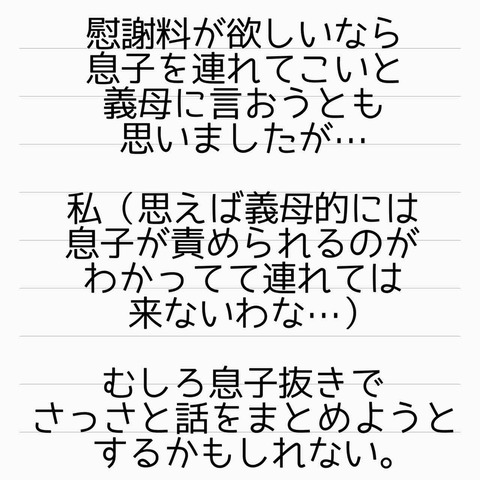 慰謝料が欲しいなら
息子を連れてこいと
義母に言おうとも
思いましたが…
私（思えば義母的には
息子が責められるのが
わかってて連れては
来ないわな…）
むしろ息子抜きで
さっさと話をまとめようと
するかもしれない。